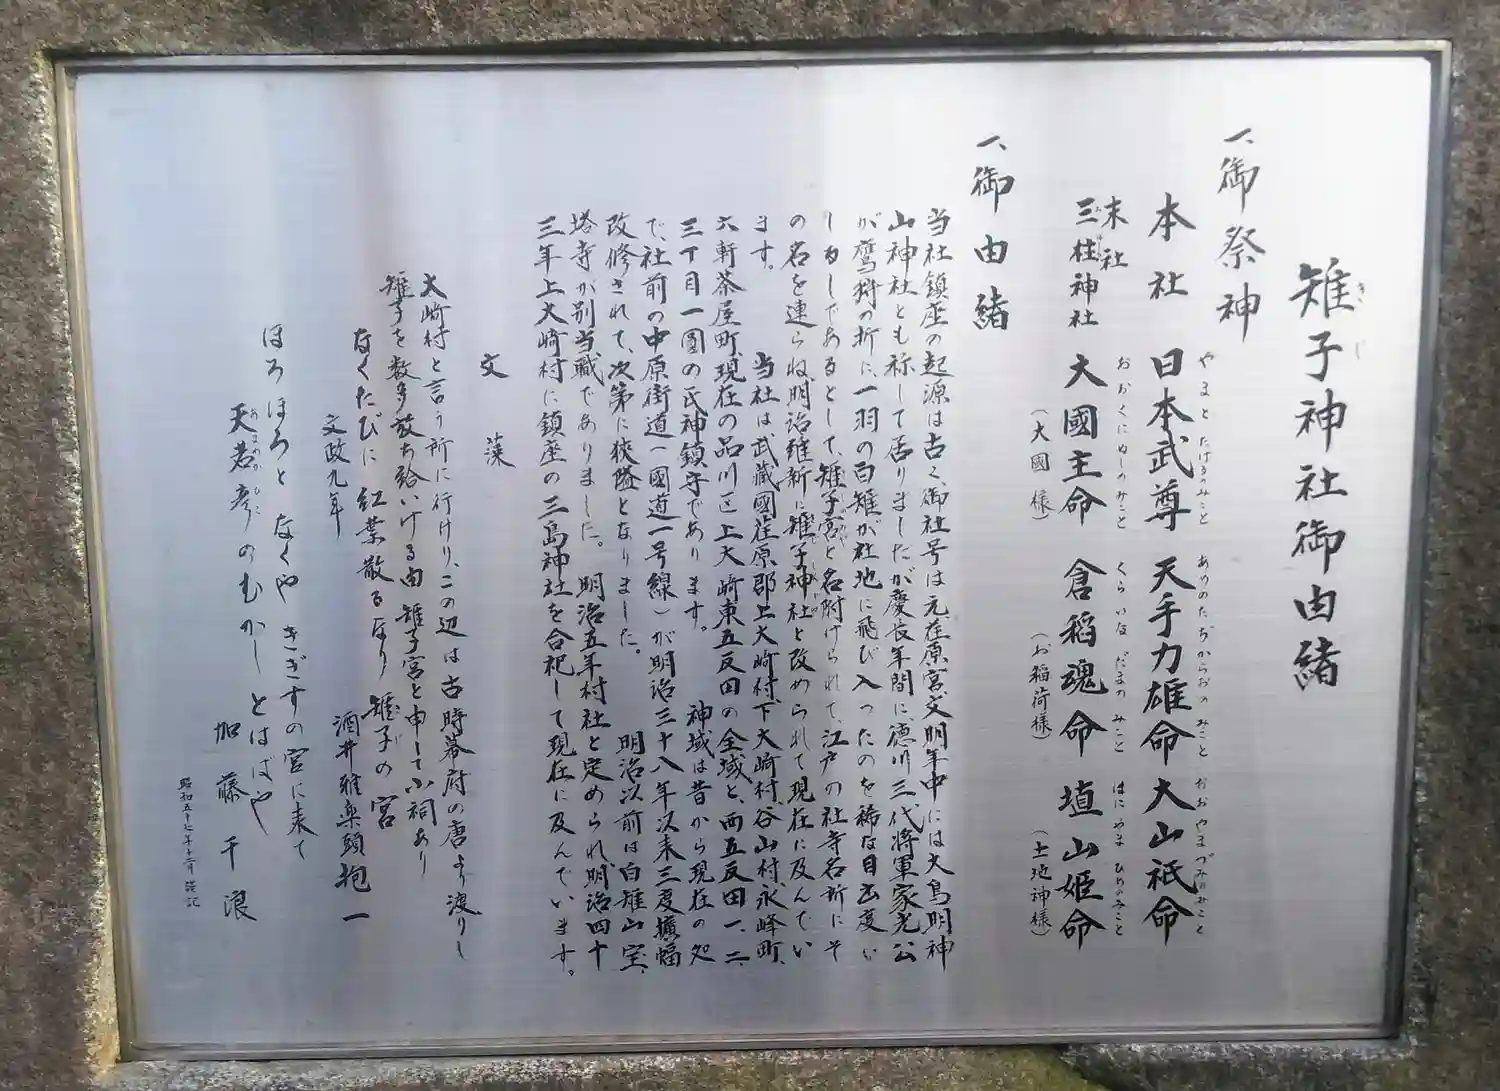 雉子神社御由緒
きじ
一、御祭神
本社 日本武尊 天手力雄命 大山祇命
やまとたけるのみこと あめのたぢからおのみこと おおやまづみのみこと
末社
三柱神社 大國主命 倉稲魂命 埴山姫命
みはしら おおくにぬしのみこと くらいなだまのみこと はにやまひめのみこと
(大國様) (お稲荷様) (土地神様)
一、御由緒
当社鎮座の起源は古く、御社号は元荏原宮文明年中には大鳥明神
山神社とも称して居りましたが慶長年間に、徳川三代将軍家光公
が鷹狩の折に、一羽の白雉が社地に飛び入ったのを稀な目出度い
しるしであるとして、雉子宮と名附けられて、江戸の社寺名所にそ
の名を連らね、明治維新に雉子神社と改められて現在に及んでい
ます。 当社は武蔵國荏原郡上大崎村、下大崎村、谷山村、永峰町、
六軒茶屋町、現在の品川区上大崎東五反田の全域と、西五反田一、二、
三丁目一圓の氏神鎮守であります。 神域は昔から現在の処
で、社前の中原街道(國道一号線)が明治三十八年以来三度擴幅
改修されて、次第に狭隘となりました。 明治以前は白雉山宝
塔寺が別当職でありました。 明治五年村社と定められ、明治四十
三年上大崎村に鎮座の三島神社を合祀して現在に及んでいます。
文藻
大崎村と言う所に行けり、この辺は古時幕府の唐より渡りし
雉子を数多放ち給いける由 雉子宮と申して小祠あり
なくたびに 紅葉散るなり 雉子の宮
文政九年 酒井雅楽頭抱一
ほろほろと なくや きぎすの宮に来て
天若彦の むかしとはばや
あめわかひこ
加藤千浪
昭和五十七年十二月 謹記